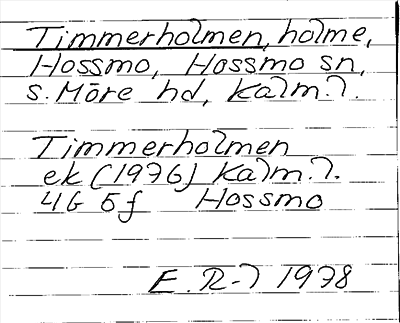 Timmerholmen, holme,
Hossmo, Hossmo sn,
S. Möre hd, Kalm. l.
Timmerholmen
ek (1976) Kalm. l.
4G 5f Hossmo
E. R-l 1978